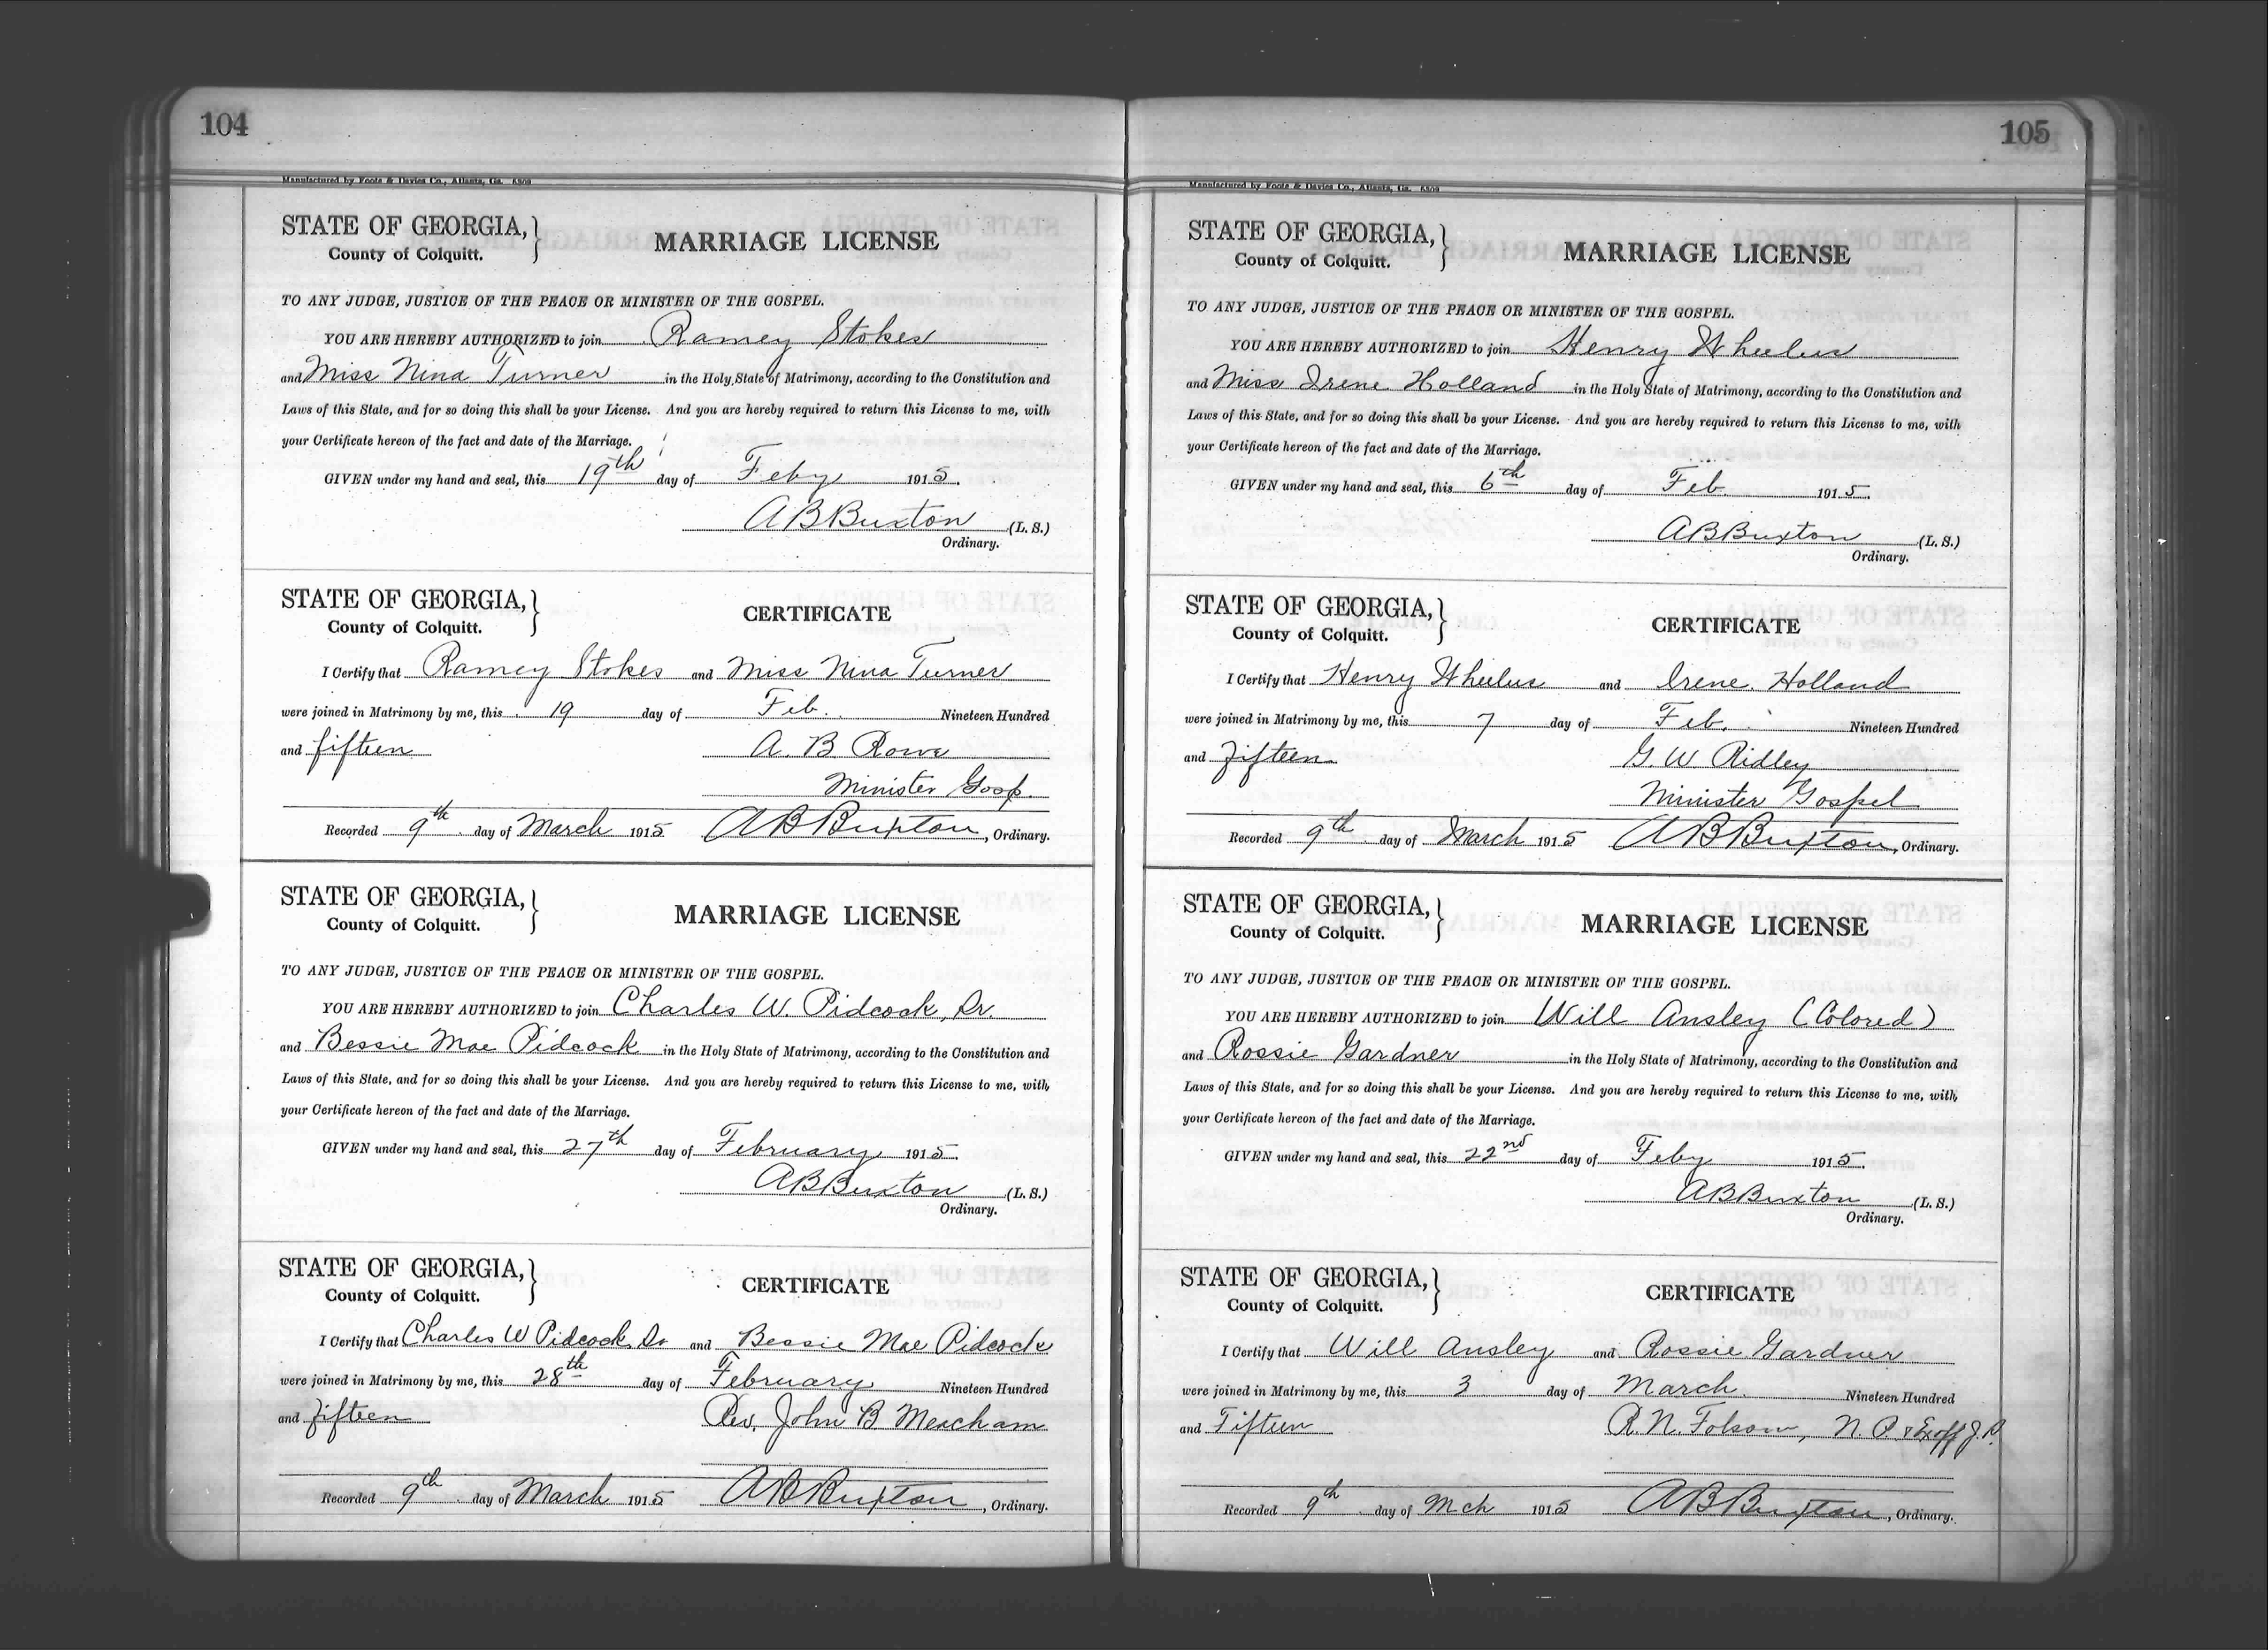 104
Manufactured by Foote & Davies Co., Atlanta, Ga. 6309
STATE OF GEORGIA,
County of Colquitt.
MARRIAGE LICENSE
TO ANY JUDGE, JUSTICE OF THE PEACE OR MINISTER OF THE GOSPEL.
YOU ARE HEREBY AUTHORIZED to join Ramey Stokes
and Miss Nina Turner in the Holy State of Matrimony, according to the Constitution and
Laws of this State, and for so doing this shall be your License. And you are hereby required to return this License to me, with
your Certificate hereon of the fact and date of the Marriage.
GIVEN under my hand and seal, this 19th day of Feby 1915.
A B Buxton (L. S.)
Ordinary.
STATE OF GEORGIA,
County of Colquitt.
CERTIFICATE
I Certify that Ramey Stokes and Miss Nina Turner
were joined in Matrimony by me, this 19 day of Feb. Nineteen Hundred
and fifteen A. B Rowe
Minister Gosp.
Recorded 9th day of March 1915 A B Buxton, Ordinary.
STATE OF GEORGIA,
County of Colquitt.
MARRIAGE LICENSE
TO ANY JUDGE, JUSTICE OF THE PEACE OR MINISTER OF THE GOSPEL.
YOU ARE HEREBY AUTHORIZED to join Charles W. Pidcock,
and Bessie Mae Pidcock in the Holy State of Matrimony, according to the Constitution and
Laws of this State, and for so doing this shall be your License. And you are hereby required to return this License to me, with
your Certificate hereon of the fact and date of the Marriage.
GIVEN under my hand and seal, this 27th day of February 1915.
A B Buxton (L. S.)
Ordinary.
STATE OF GEORGIA,
County of Colquitt.
CERTIFICATE
I Certify that Charles W Pidcock and Bessie Mae Pidcock
were joined in Matrimony by me, this 28th day of February Nineteen Hundred
and fifteen Rev. John B Meacham
Recorded 9th day of March 1915 A B Buxton, Ordinary.
105
Manufactured by Foote & Davies Co., Atlanta, Ga. 6309
STATE OF GEORGIA,
County of Colquitt.
MARRIAGE LICENSE
TO ANY JUDGE, JUSTICE OF THE PEACE OR MINISTER OF THE GOSPEL.
YOU ARE HEREBY AUTHORIZED to join Henry Wheelus
and Miss Irene Holland in the Holy State of Matrimony, according to the Constitution and
Laws of this State, and for so doing this shall be your License. And you are hereby required to return this License to me, with
your Certificate hereon of the fact and date of the Marriage.
GIVEN under my hand and seal, this 6th day of Feb. 1915.
A B Buxton (L. S.)
Ordinary.
STATE OF GEORGIA,
County of Colquitt.
CERTIFICATE
I Certify that Henry Wheelus and Irene Holland
were joined in Matrimony by me, this 7 day of Feb. Nineteen Hundred
and fifteen G. W. Ridley
Minister Gospel
Recorded 9th day of March 1915 A B Buxton, Ordinary.
STATE OF GEORGIA,
County of Colquitt.
MARRIAGE LICENSE
TO ANY JUDGE, JUSTICE OF THE PEACE OR MINISTER OF THE GOSPEL.
YOU ARE HEREBY AUTHORIZED to join Will Ansley (Colored)
and Rossie Gardner in the Holy State of Matrimony, according to the Constitution and
Laws of this State, and for so doing this shall be your License. And you are hereby required to return this License to me, with
your Certificate hereon of the fact and date of the Marriage.
GIVEN under my hand and seal, this 22nd day of Feby 1915.
A B Buxton (L. S.)
Ordinary.
STATE OF GEORGIA,
County of Colquitt.
CERTIFICATE
I Certify that Will Ansley and Rossie Gardner
were joined in Matrimony by me, this 3 day of March Nineteen Hundred
and Fifteen R. N. Folsom, N. P. & Exoff J. P.
Recorded 9th day of Mch 1915 A B Buxton, Ordinary.